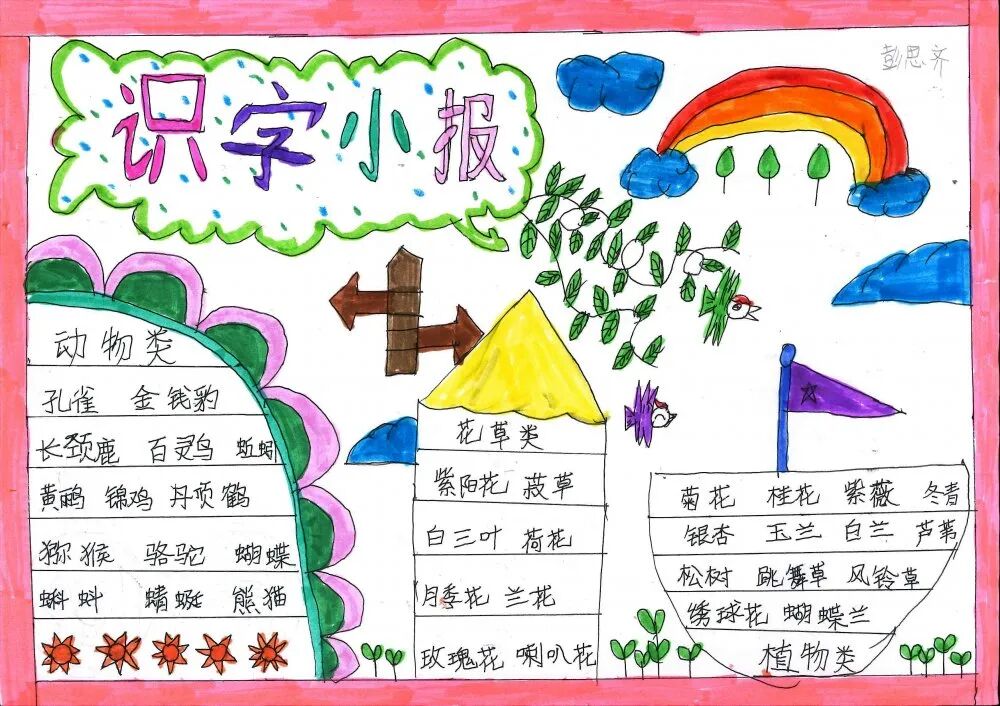 识字小报
彭思齐
动物类
孔雀 金钱豹
长颈鹿 百灵鸟 蚯蚓
黄鹂 锦鸡 丹顶鹤
猕猴 骆驼 蝴蝶
蝌蚪 蜻蜓 熊猫
花草类
紫阳花 菠草
白三叶 荷花
月季花 兰花
玫瑰花 喇叭花
菊花 桂花 紫薇 冬青
银杏 玉兰 白兰 芦苇
松树 跳舞草 风铃草
绣球花 蝴蝶兰
植物类